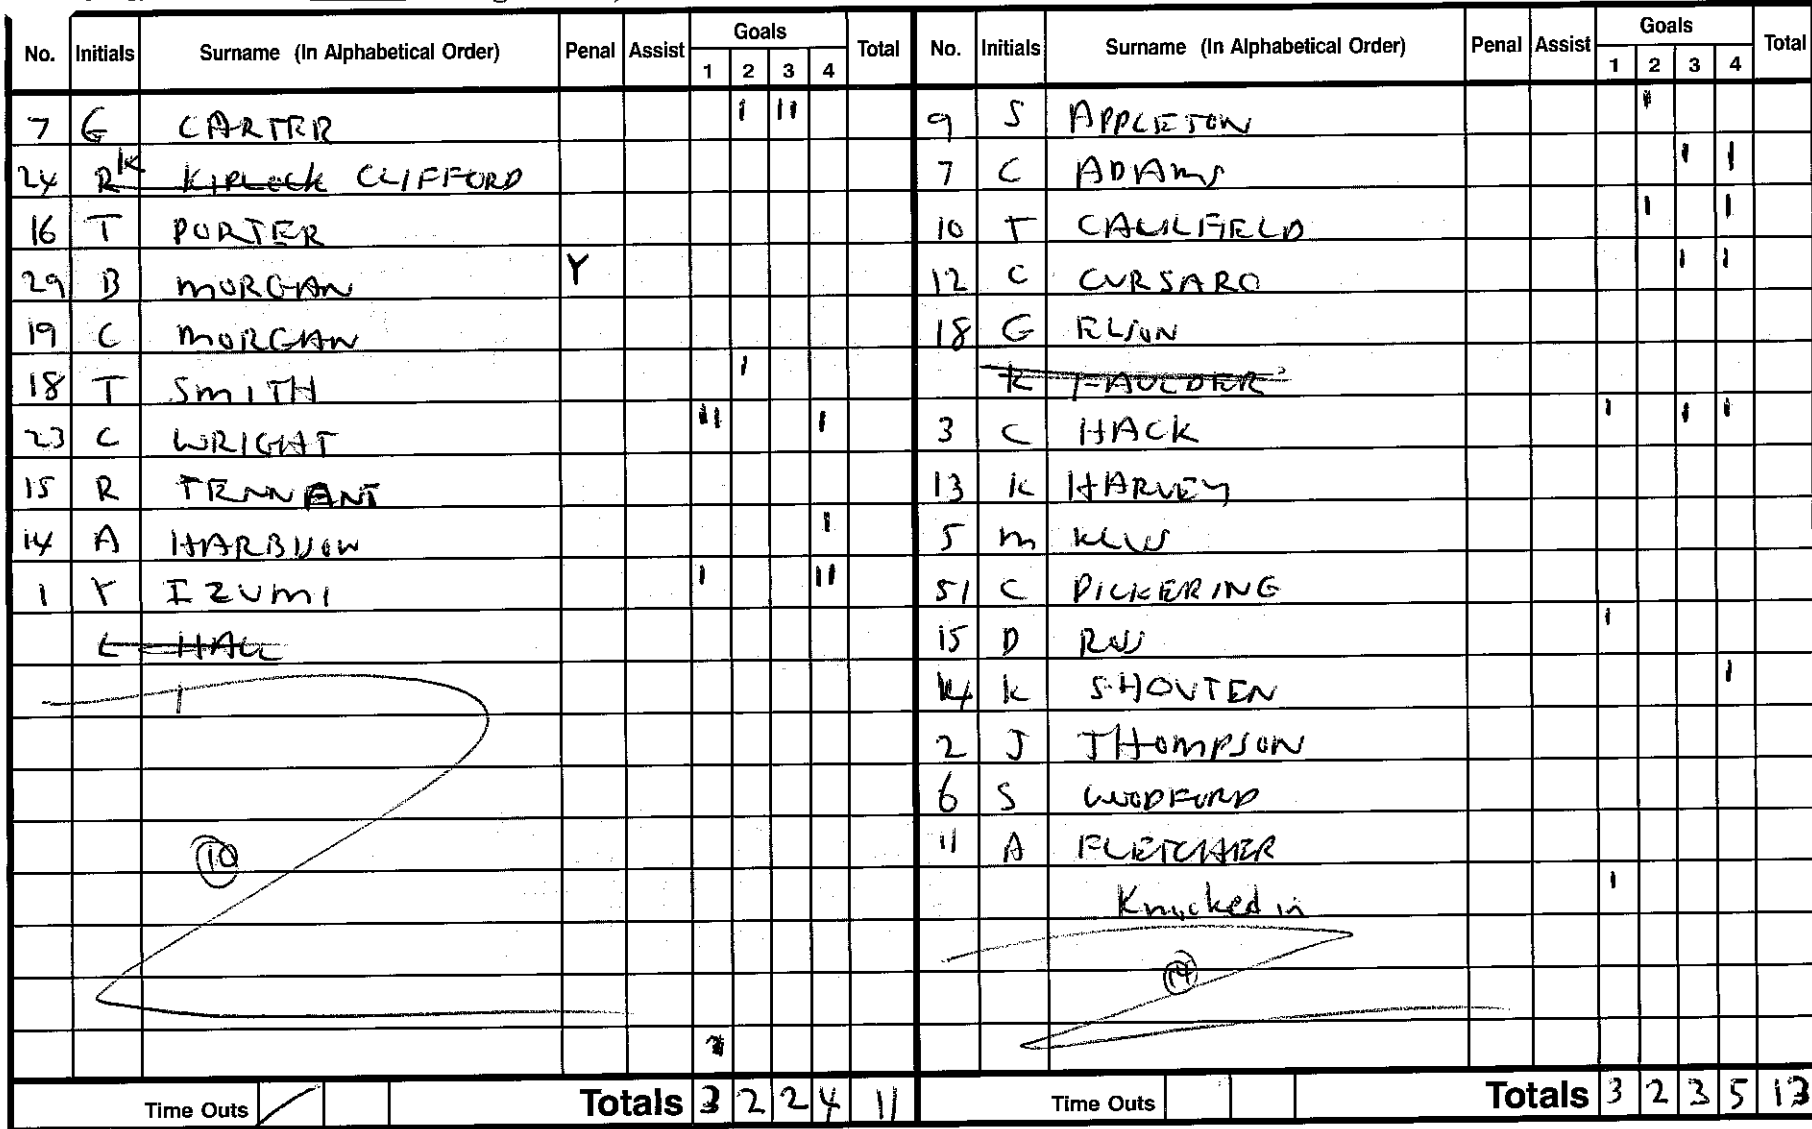 No. Initials Surname (In Alphabetical Order) Penal Assist Goals 1 2 3 4 Total
7 G CARTER I II
24 R K KIPLOCK CLIFFORD
16 T PORTER
29 B MORGAN Y
19 C MORGAN
18 T SMITH I
23 C WRIGHT II I
15 R TENNANT
14 A I
1 Y IZUMI I II
L HALL
10
Time Outs Totals 3 2 2 4 11
No. Initials Surname (In Alphabetical Order) Penal Assist Goals 1 2 3 4 Total
9 S APPLETON I
7 C ADAMS I I
10 T CAULFIELD I I
12 C CURSARO I I
18 G ELSON
K FAULDER
3 C HACK I I I
13 K HARVEY
5 M
51 C PICKERING
15 D I
14 K SHOUTEN I
2 J THOMPSON
6 S WOODFORD
11 A FLETCHER
Knocked in I
14
Time Outs Totals 3 2 3 5 13